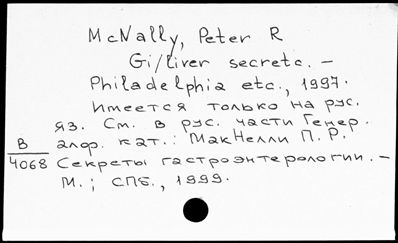 McNally, Peter R
Gi/liver secrets. –
Philadelphia etc., 1997.
Имеется только на рус.
яз. См. в рус. части Генер.
В алф. кат.: МакНелли П. Р.
4068 Секреты гастроэнтерологии. –
М.; СПб., 1999.